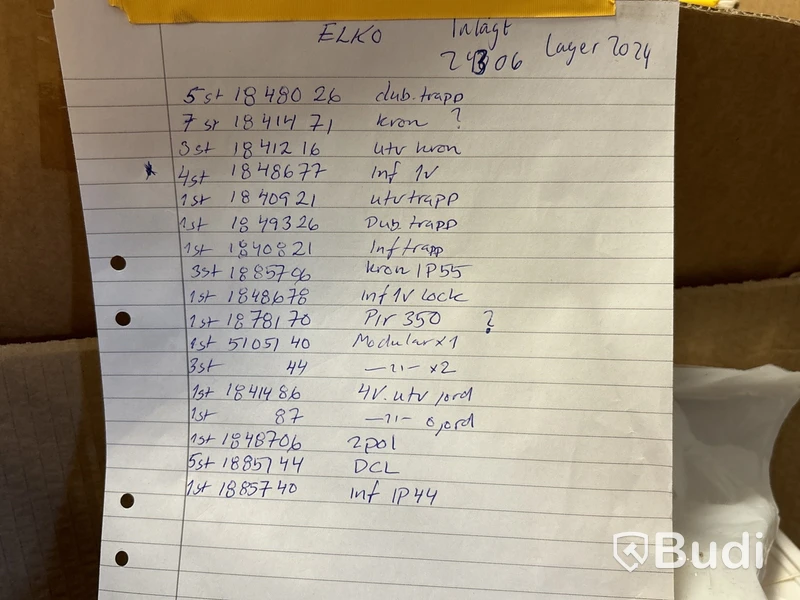 ELKO Inlagt Lager 2024
24306
5st 1848026 dub.trapp
7st 1841471 kron ?
3st 1841216 utv kron
* 4st 1848677 Inf 1v
1st 1840921 utv trapp
1st 1849326 Dub.trapp
1st 1840821 Inf trapp
3st 1885706 kron IP55
1st 1848678 Inf 1v lock
1st 1878170 Pir 350 ?
1st 5105140 Modular x1
3st 44 -"- x2
1st 1841486 4V. utv jord
1st 87 -"- ojord
1st 1848706 2pol
5st 1885144 DCL
1st 1885740 Inf IP44
Budi